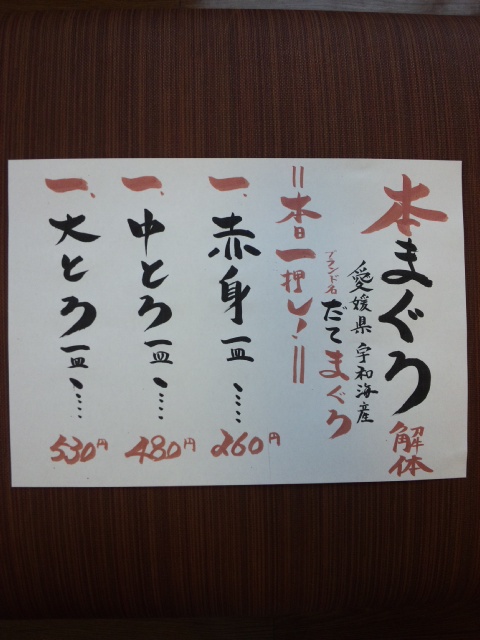 本まぐろ解体
愛媛県宇和海産
ブランド名だてまぐろ
＝本日一押し！＝
一、赤身一皿……260円
一、中とろ一皿……480円
一、大とろ一皿……530円